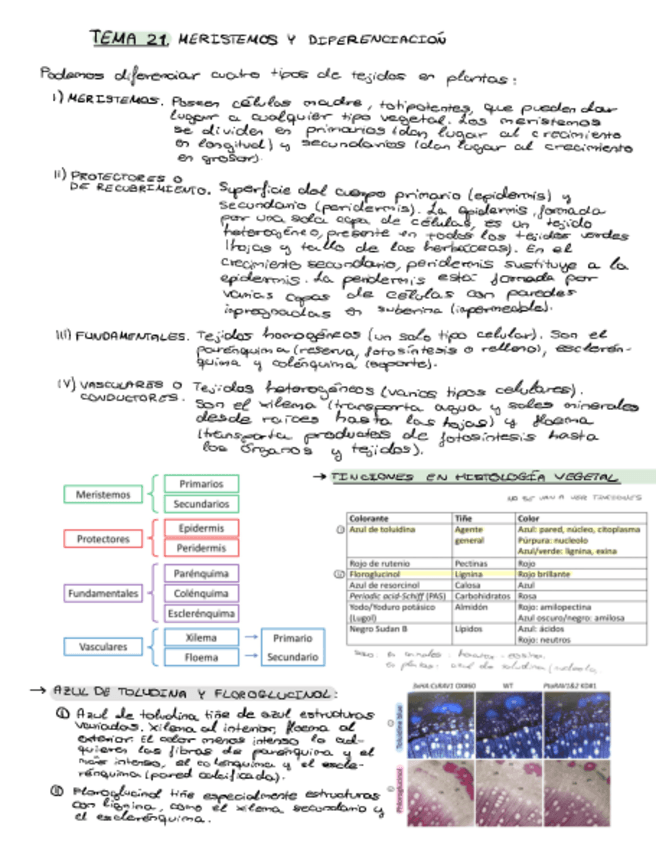 TEMA 21. MERISTEMOS Y DIFERENCIACIÓN
Podemos diferenciar cuatro tipos de tejidos en plantas:
I) MERISTEMOS. Poseen células madre, totipotentes, que pueden dar
lugar a cualquier tipo vegetal. Los meristemos
se dividen en primarios (dan lugar al crecimiento
en longitud) y secundarios (dan lugar al crecimiento
en grosor).
II) PROTECTORES O
DE RECUBRIMIENTO. Superficie del cuerpo primario (epidermis) y
secundario (peridermis). La epidermis, formada
por una sola capa de células, es un tejido
heterogéneo, presente en todos los tejidos verdes
(hojas y tallo de las herbáceas). En el
crecimiento secundario, peridermis sustituye a la
epidermis. La peridermis está formada por
varias capas de células con paredes
impregnadas en suberina (impermeable).
III) FUNDAMENTALES. Tejidos homogéneos (un solo tipo celular). Son el
parénquima (reserva, fotosíntesis o relleno), esclerén-
quima y colénquima (soporte).
IV) VASCULARES O
CONDUCTORES. Tejidos heterogéneos (varios tipos celulares).
Son el xilema (transporta agua y sales minerales
desde raíces hasta las hojas) y floema
(transporta productos de fotosíntesis hasta
los órganos y tejidos).
Meristemos
Primarios
Secundarios
Protectores
Epidermis
Peridermis
Fundamentales
Parénquima
Colénquima
Esclerénquima
Vasculares
Xilema
Floema
Primario
Secundario
→ TINCIONES EN HISTOLOGÍA VEGETAL
NO SE VAN A VER TINCIONES
Colorante Tiñe Color
I Azul de toluidina Agente general Azul: pared, núcleo, citoplasma
Púrpura: nucleolo
Azul/verde: lignina, exina
Rojo de rutenio Pectinas Rojo
II Floroglucinol Lignina Rojo brillante
Azul de resorcinol Calosa Azul
Periodic acid-Schiff (PAS) Carbohidratos Rosa
Yodo/Yoduro potásico (Lugol) Almidón Rojo: amilopectina
Azul oscuro/negro: amilosa
Negro Sudan B Lípidos Azul: ácidos
Rojo: neutros
→ AZUL DE TOLUDINA Y FLOROGLUCINOL:
I Azul de toluidina tiñe de azul estructuras
variadas. Xilema al interior, floema al
exterior. El color menos intenso lo ad-
quieren las fibras de parénquima y el
más intenso, el colénquima y el escle-
rénquima (pared calcificada).
II Floroglucinol tiñe especialmente estructuras
con lignina, como el xilema secundario y
el esclerénquima.
WT
Toluidine blue
Phloroglucinol